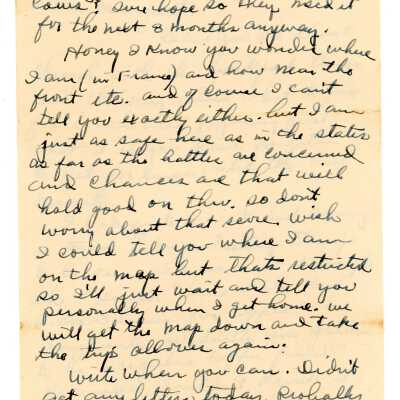 sure hope so they need it
for the next 8 months anyway.
Honey I know you wonder where
I am (in France) and how near the
front etc. and of course I can't
tell you exactly either. but I am
just as safe here as in the states
as far as the battles are concerned
and chances are that will
hold good on thru. so don't
worry about that score. wish
I could tell you where I am
on the map but thats restricted
so I'll just wait and tell you
personally when I get home. we
will get the map down and take
the trip all over again.
Write when you can. Didn't
get any letters today. Probably